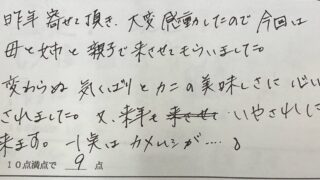 昨年寄せて頂き、大変感動したので今回は
母と姉と親子で来させてもらいました。
変わらぬ気くばりとカニの美味しさに心い
されました。又、来年も来させ いやされに
来ます。一実はカメムシが‥‥。
10点満点で 9 点